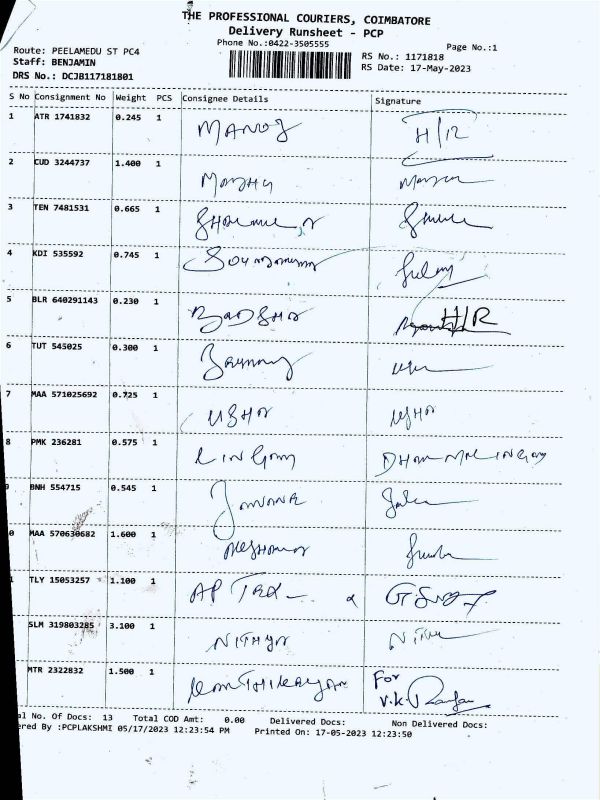 THE PROFESSIONAL COURIERS, COIMBATORE
Delivery Runsheet - PCP
Phone No.:0422-3505555
Page No.:1
Route: PEELAMEDU ST PC4
Staff: BENJAMIN
DRS No.: DCJB117181801
RS No.: 1171818
RS Date: 17-May-2023
S No Consignment No Weight PCS Consignee Details Signature
1 ATR 1741832 0.245 1 MANOJ H/R
2 CUD 3244737 1.400 1
3 TEN 7481531 0.665 1
4 KDI 535592 0.745 1
5 BLR 640291143 0.230 1 BADSHA H/R
6 TUT 545025 0.300 1
7 MAA 571025692 0.725 1 USHA USHA
8 PMK 236281 0.575 1 LINGAM
BNH 554715 0.545 1
0 MAA 570630682 1.600 1
TLY 15053257 1.100 1 AP
SLM 319803285 3.100 1 NITHYA
MTR 2322832 1.500 1 For
V.K.
al No. Of Docs: 13 Total COD Amt: 0.00 Delivered Docs: Non Delivered Docs:
ered By :PCPLAKSHMI 05/17/2023 12:23:54 PM Printed On: 17-05-2023 12:23:50